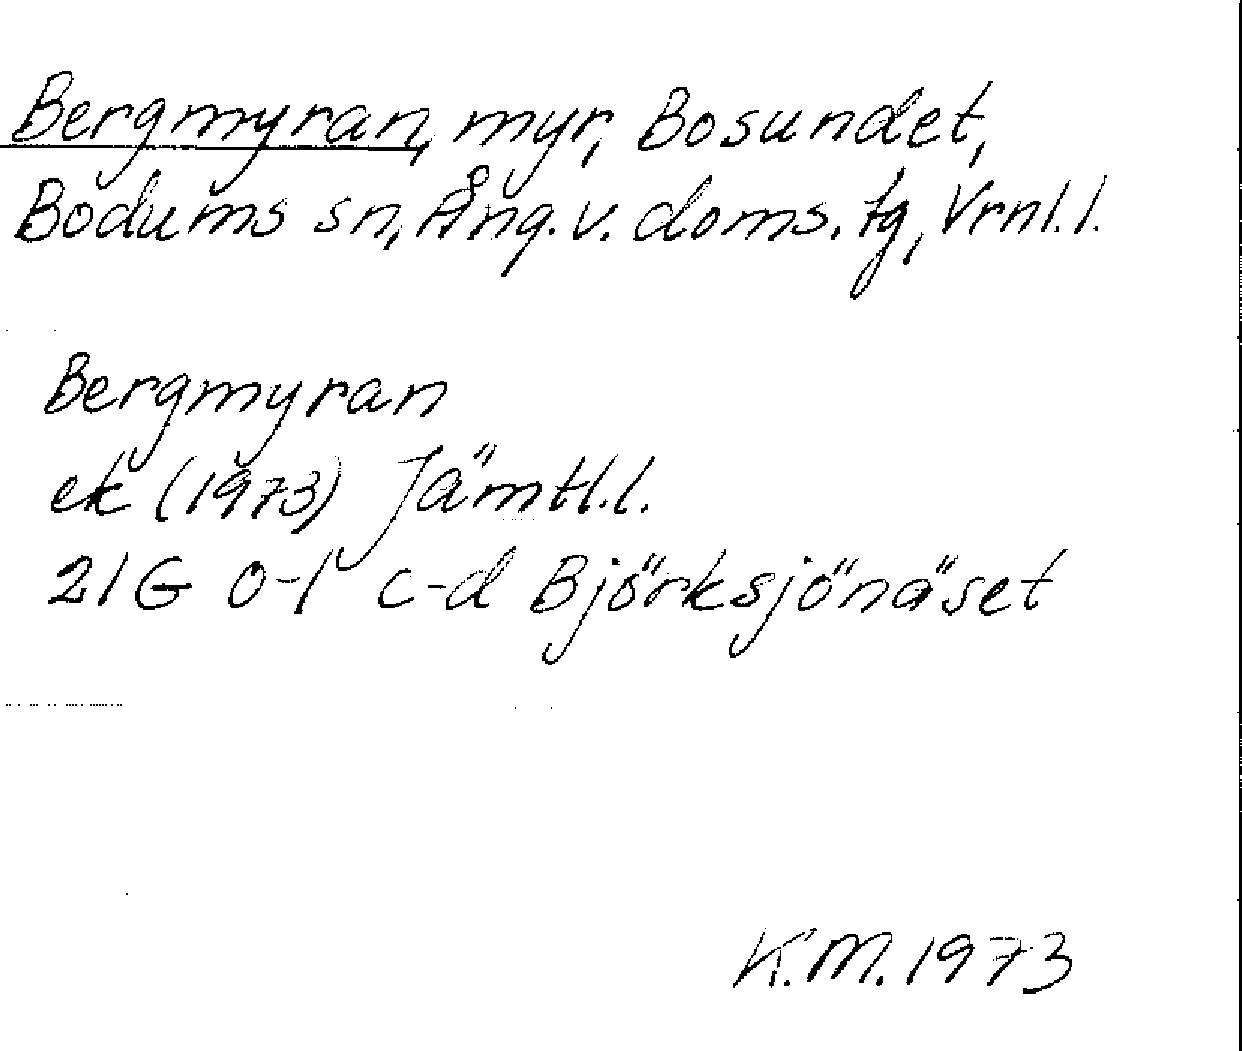 Bergmyran, myr, Bosundet,
Bodums sn, Ång. v. doms. tg, Vrnl. l.
Bergmyran
ek (1973) Jämtl. l.
21G 0-1 c-d Björksjönäset
K.M. 1973